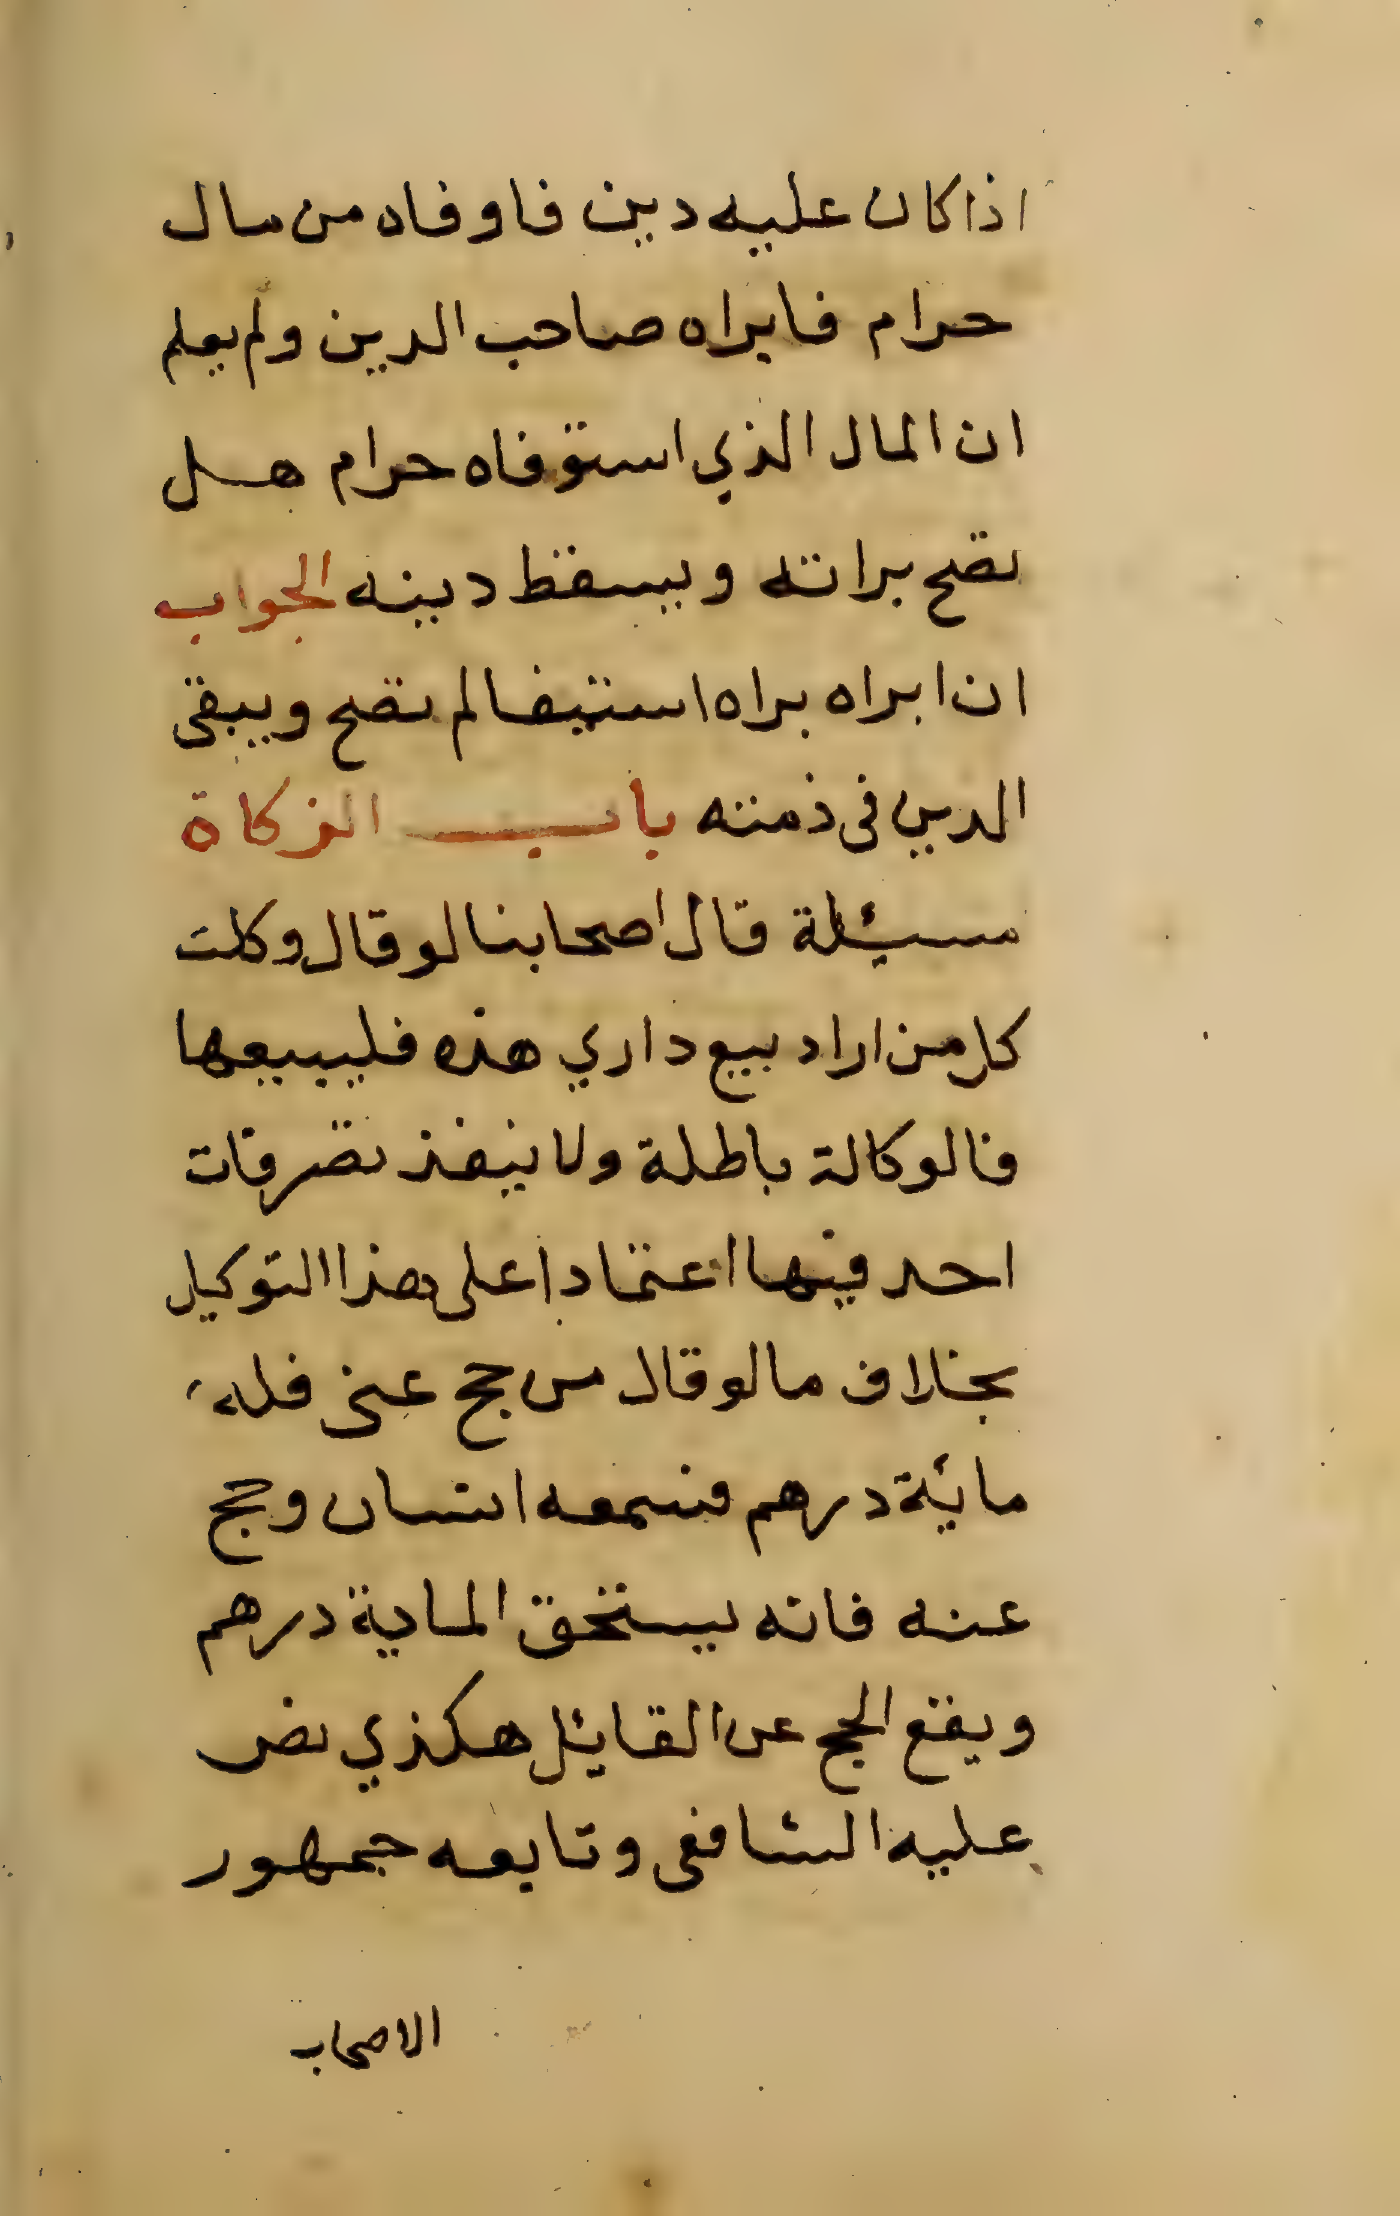 اذا كان عليه دين فاوفاه من مال
حرام فابراه صاحب الدين ولم يعلم
ان المال الذي استوفاه حرام هل
تصح براته ويسقط دينه الجواب
ان ابراه براه استيفا لم تصح ويبقى
الدين فى ذمته باب الزكاة
مسئلة قال اصحابنا لو قال وكلت
كل من اراد بيع داري هذه فليبيعها
فالوكالة باطلة ولا ينفذ تصرفات
احد فيها اعتمادا على هذا التوكيل
بخلاف ما لو قال من حج عنى فله
مائة درهم فسمعه انسان وحج
عنه فانه يستحق الماية درهم
ويقع الحج عن القايل هكذي نص
عليه الشافعى وتابعه جمهور
الاصحاب